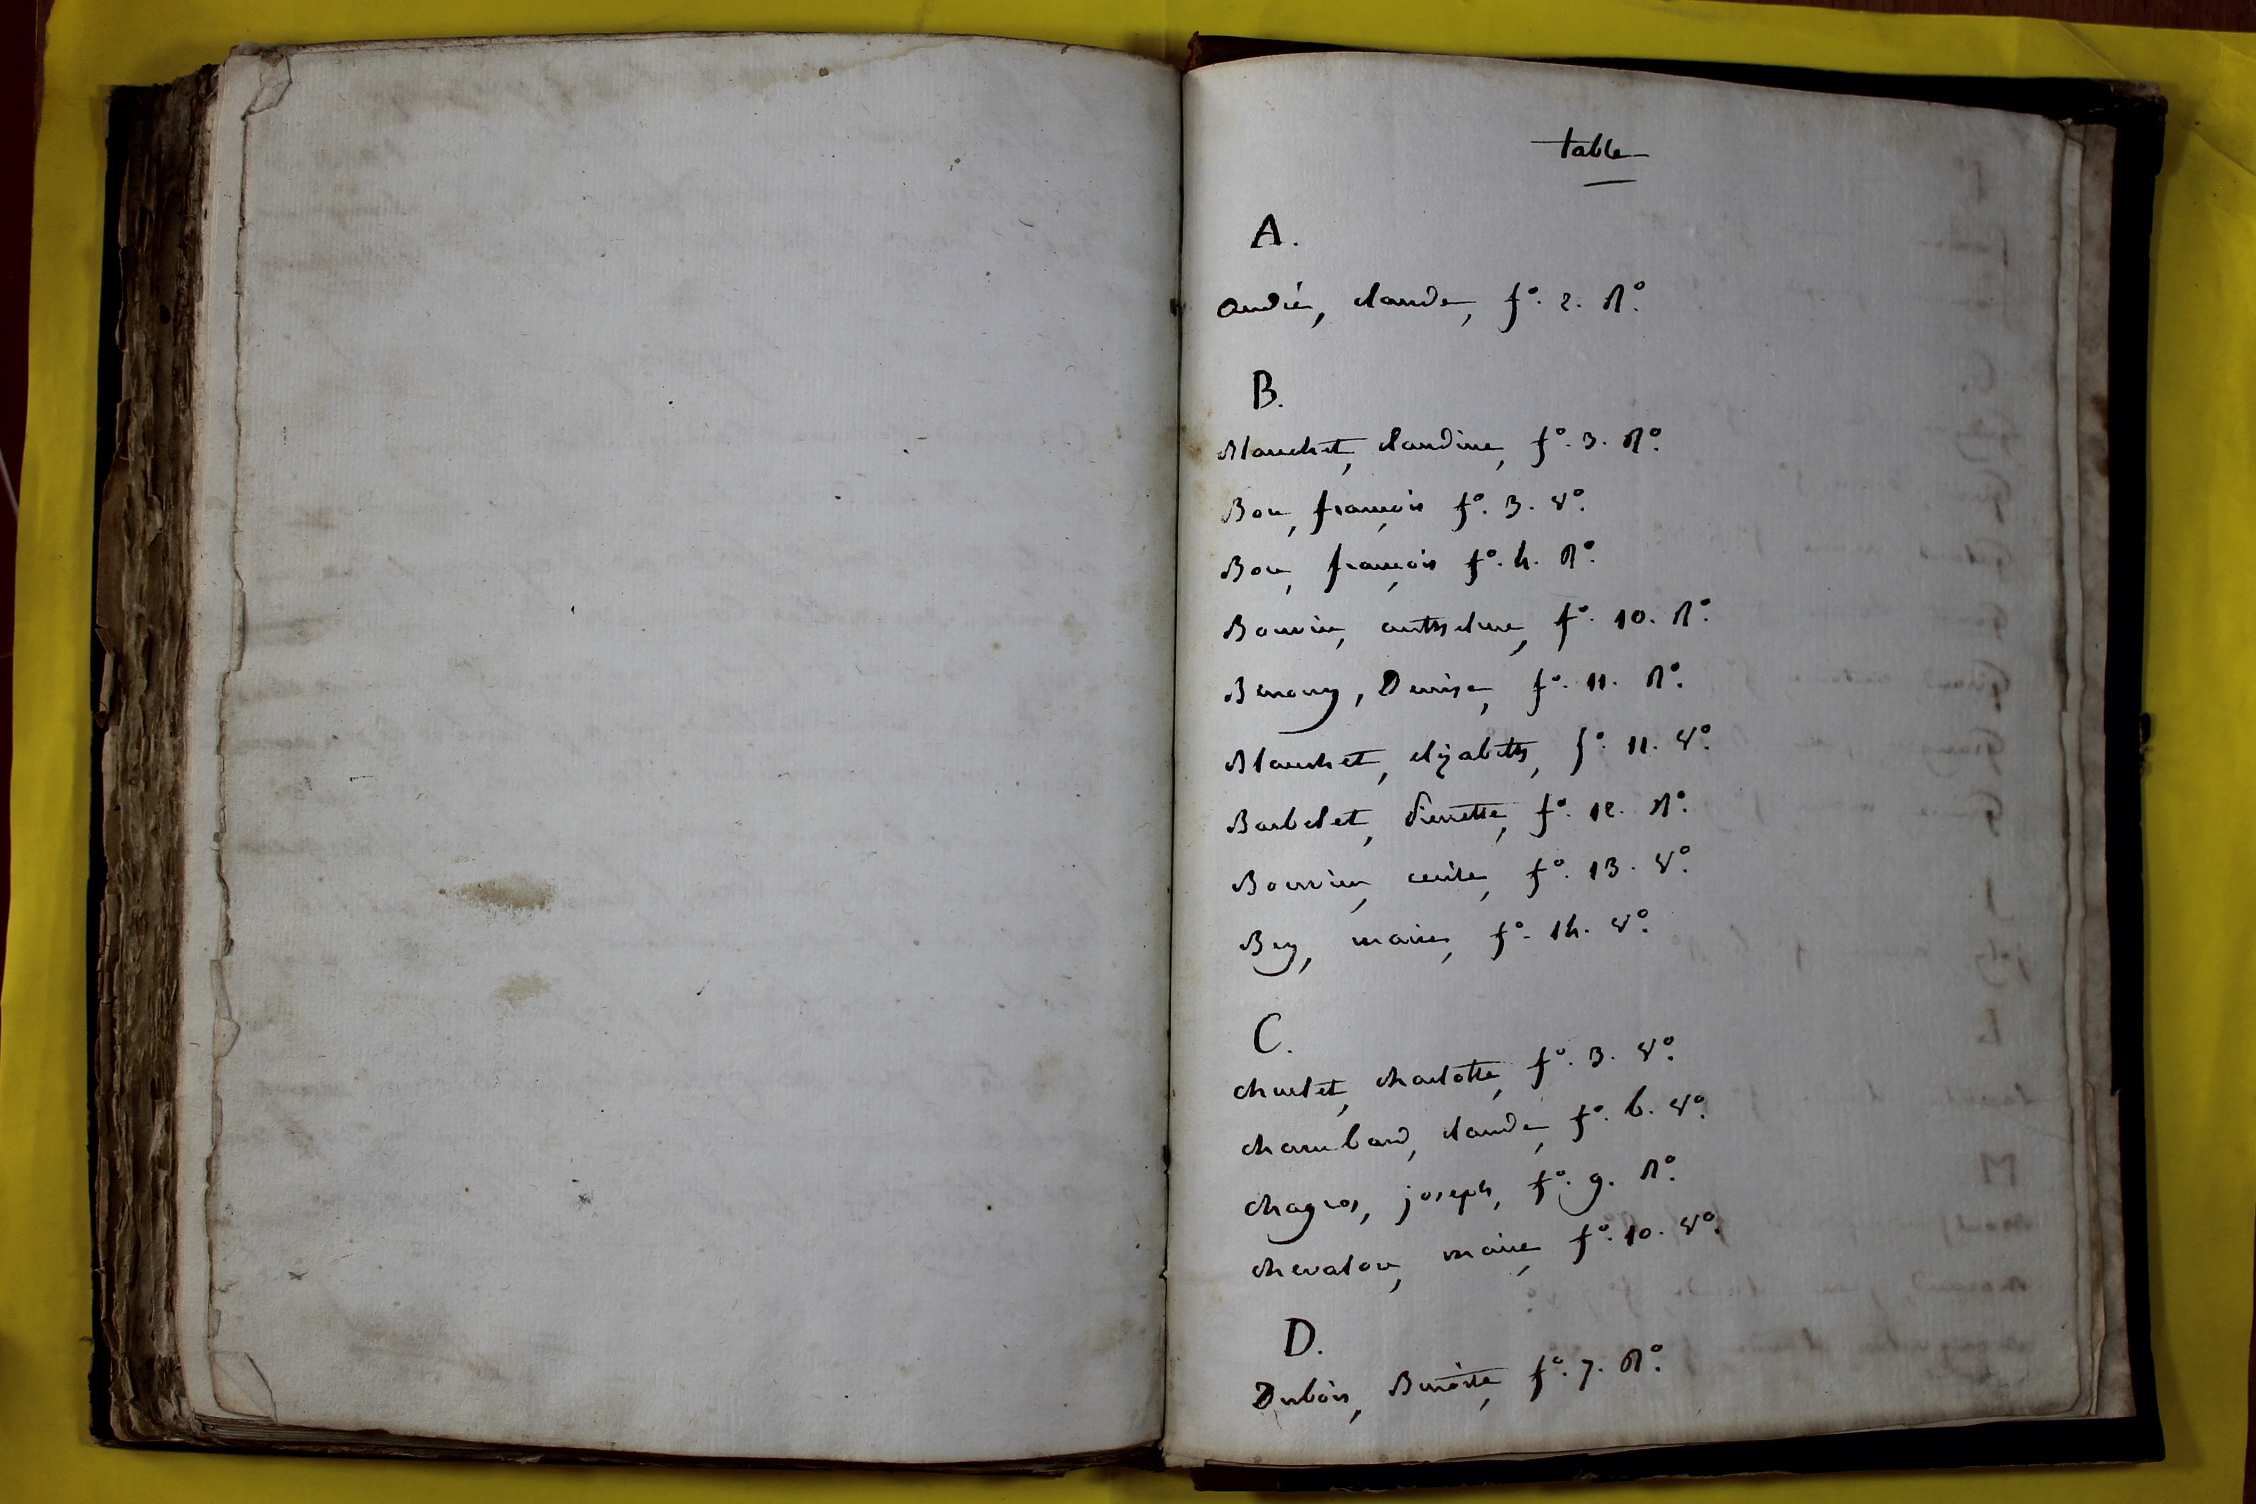 table
A.
andré, claude, f°. 2. R°.
B.
Blanchet, claudine, f°. 3. R°.
Bon, françois f°. 3. v°.
Bon, françois f°. 4. R°.
Bouvier, anthelme, f°. 10. R°.
Benony, Denise, f°. 11. R°.
Blanchet, elizabeth, f°. 11. v°.
Barbelet, Pierrette, f°. 12. R°.
Bouvier, cecile, f°. 13. v°.
Bey, marie, f°. 14. v°.
C.
charlet, charlotte, f°. 3. v°.
chambard, claude, f°. 6. v°.
chagros, joseph, f°. 9. R°.
chevalon, marie, f°. 10. v°.
D.
Dubois, Benoite, f°. 7. R°.